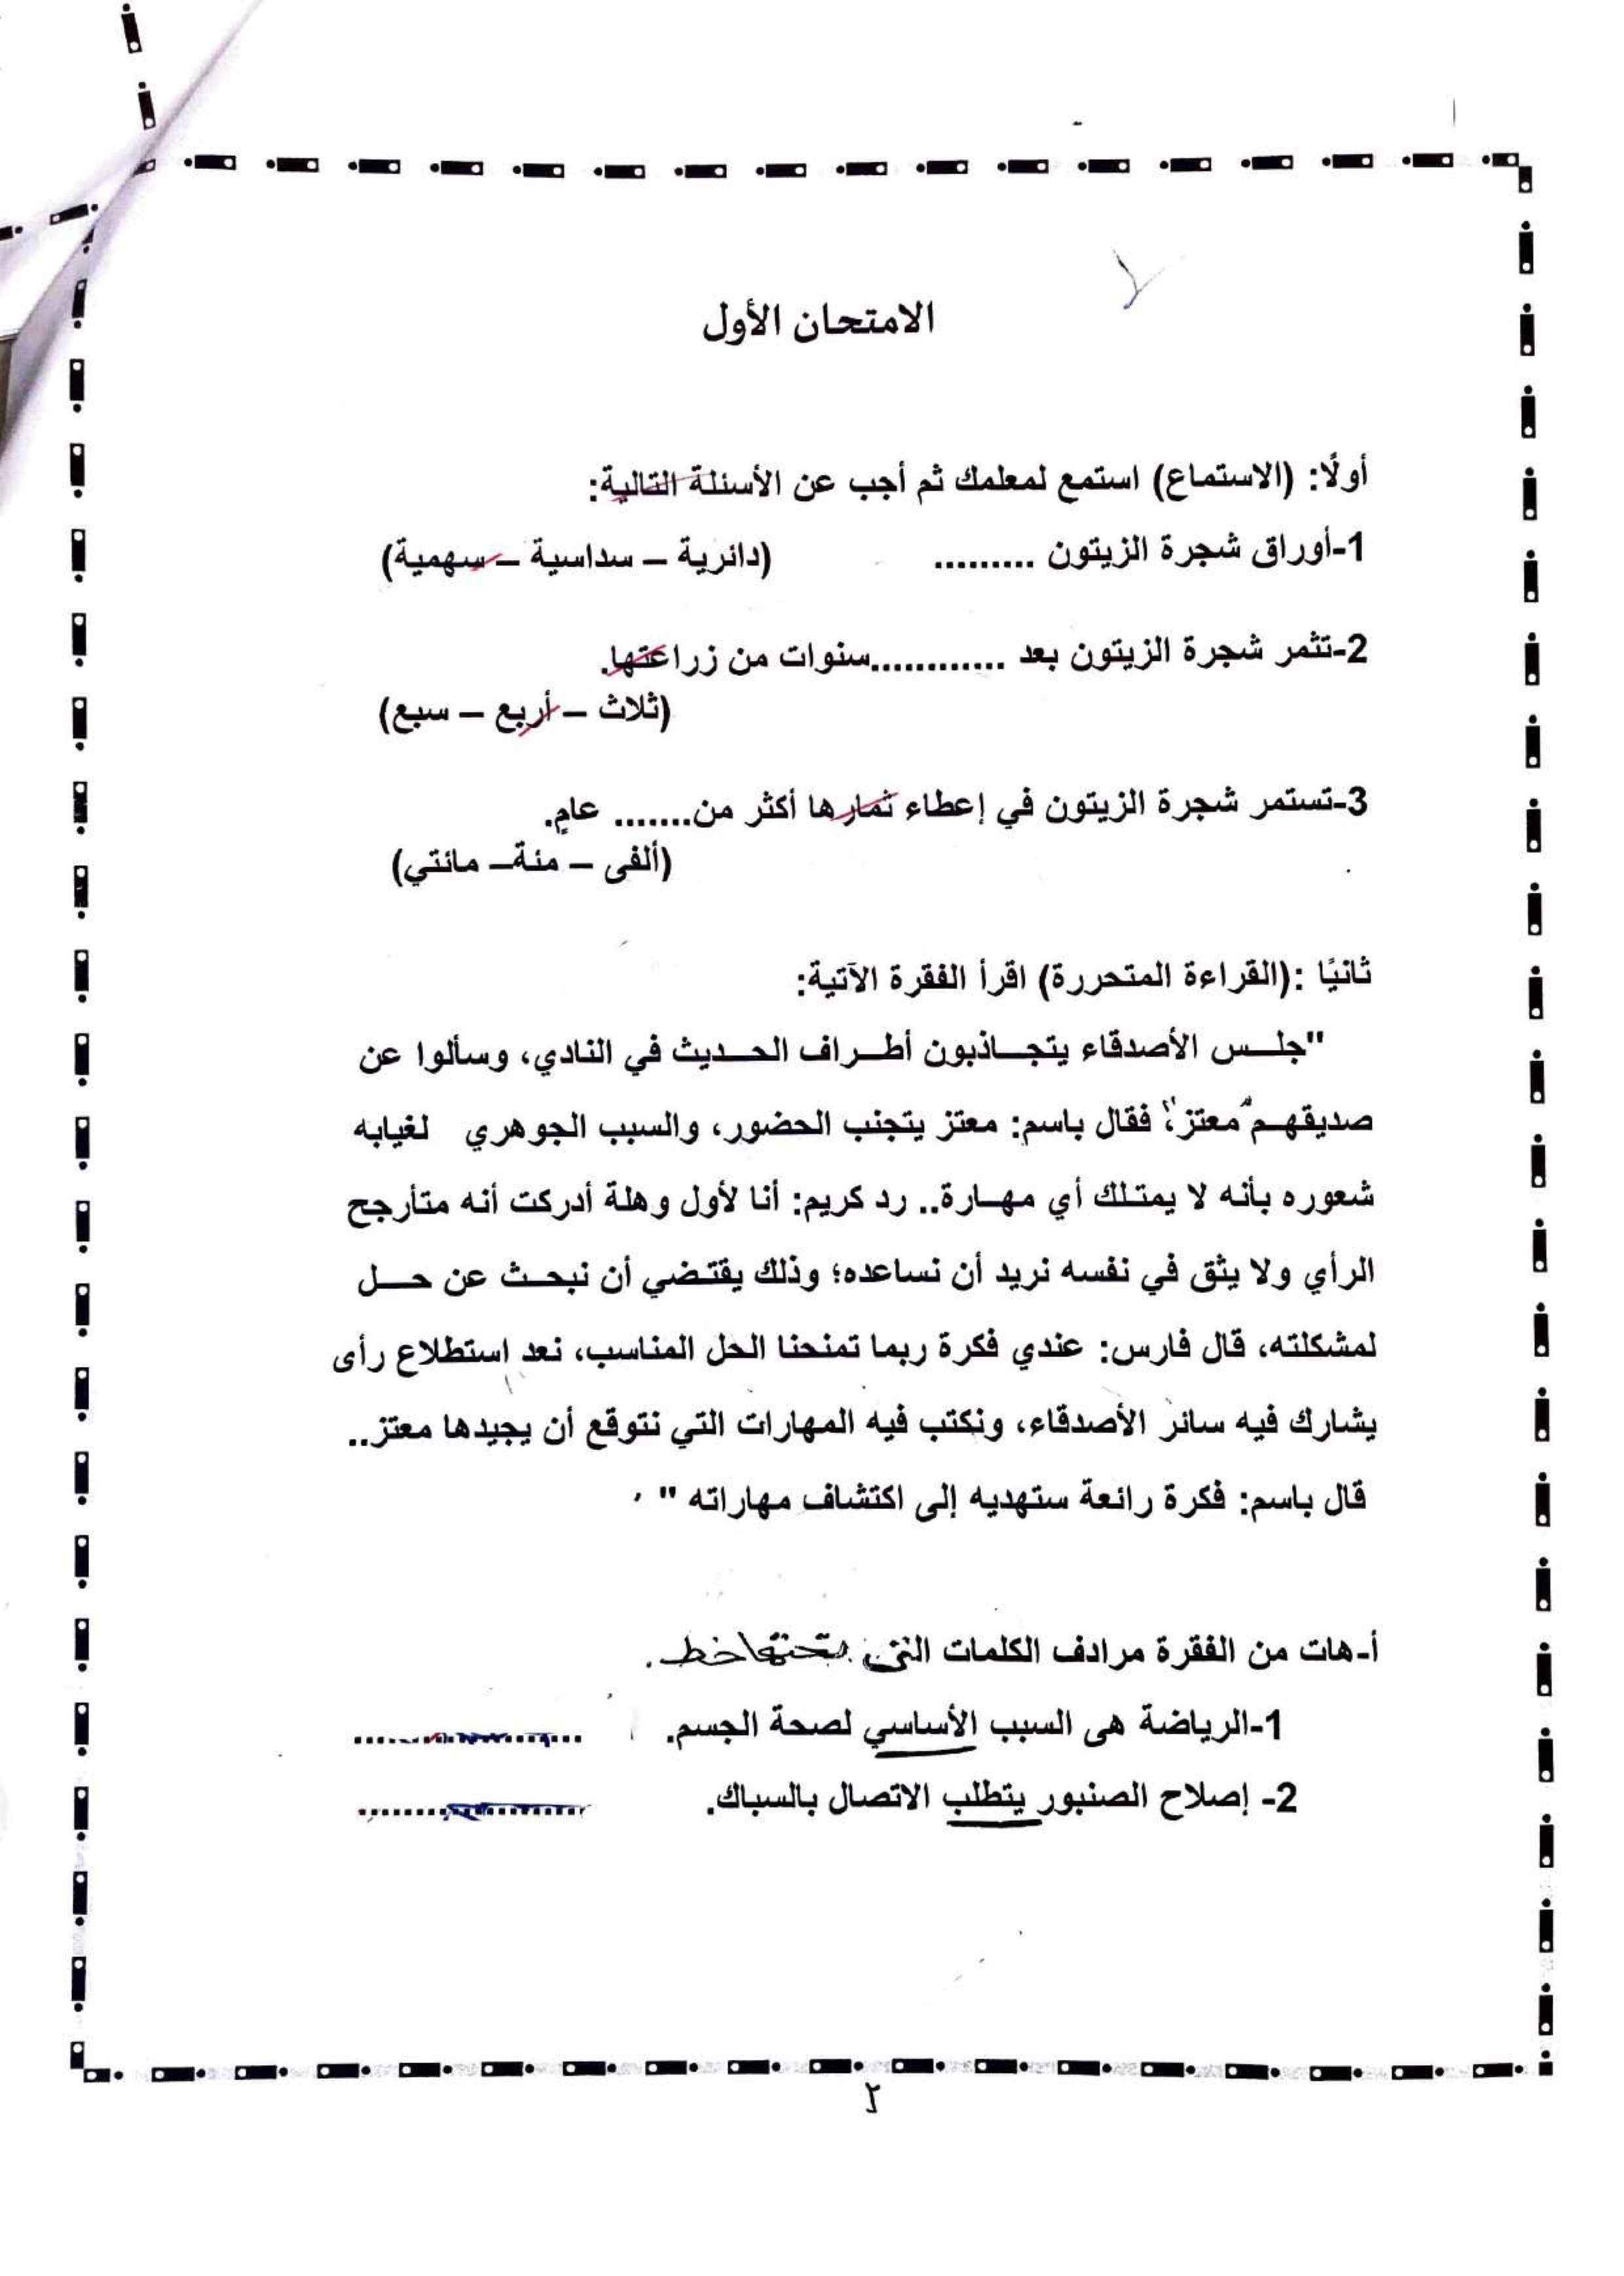 الامتحان الأول
أولًا: (الاستماع) استمع لمعلمك ثم أجب عن الأسئلة التالية:
1-أوراق شجرة الزيتون ......... (دائرية – سداسية – سهمية)
2-تثمر شجرة الزيتون بعد ............سنوات من زراعتها.
(ثلاث – أربع – سبع)
3-تستمر شجرة الزيتون في إعطاء ثمارها أكثر من....... عامٍ.
(ألفى – مئة– مائتي)
ثانيًا :(القراءة المتحررة) اقرأ الفقرة الآتية:
"جلس الأصدقاء يتجاذبون أطراف الحديث في النادي، وسألوا عن
صديقهم "معتز"، فقال باسم: معتز يتجنب الحضور، والسبب الجوهري لغيابه
شعوره بأنه لا يمتلك أي مهارة.. رد كريم: أنا لأول وهلة أدركت أنه متأرجح
الرأي ولا يثق في نفسه نريد أن نساعده؛ وذلك يقتضي أن نبحث عن حل
لمشكلته، قال فارس: عندي فكرة ربما تمنحنا الحل المناسب، نعد استطلاع رأى
يشارك فيه سائر الأصدقاء، ونكتب فيه المهارات التي نتوقع أن يجيدها معتز..
قال باسم: فكرة رائعة ستهديه إلى اكتشاف مهاراته "
أ-هات من الفقرة مرادف الكلمات التى تحتها خط.
1-الرياضة هى السبب الأساسي لصحة الجسم. ......................
2- إصلاح الصنبور يتطلب الاتصال بالسباك. ......................
٢